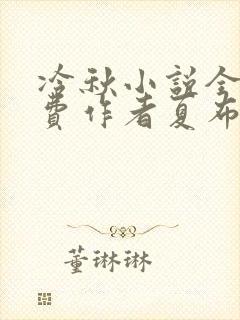 冷秋小説全
費作者夏布
董琳琳